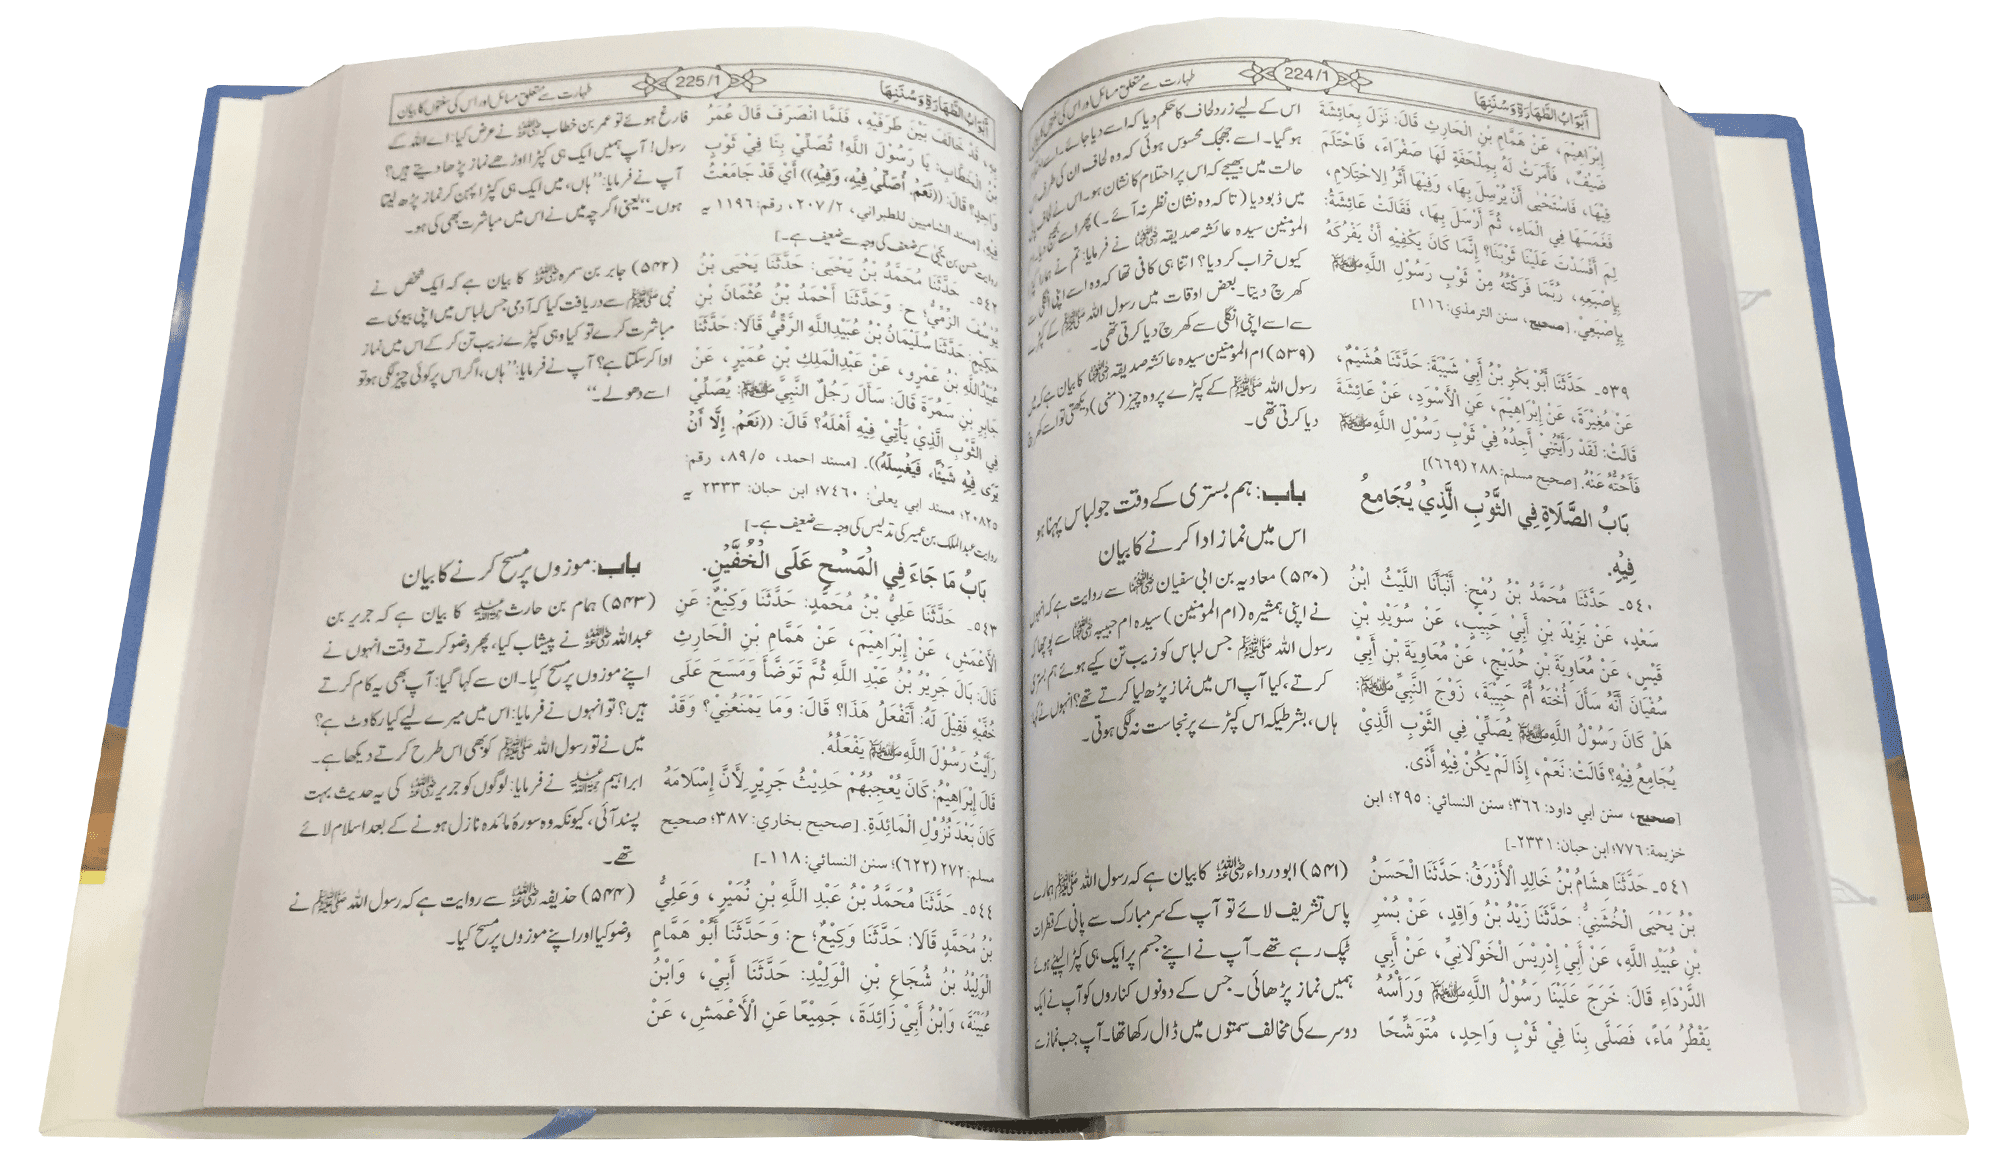 أَبْوَابُ الطَّهَارَةِ وَسُنَنِهَا
224/1
طہارت سے متعلق مسائل اور اس کی سنتوں کا بیان
إِبْرَاهِيْمَ، عَنْ هَمَّامِ بْنِ الْحَارِثِ قَالَ: نَزَلَ بِعَائِشَةَ
ضَيْفٌ، فَأَمَرَتْ لَهُ بِمِلْحَفَةٍ لَهَا صَفْرَاءَ، فَاحْتَلَمَ
فِيْهَا، فَاسْتَحْيٰى أَنْ يُرْسِلَ بِهَا، وَفِيْهَا أَثَرُ الِاحْتِلَامِ،
فَغَمَسَهَا فِي الْمَاءِ، ثُمَّ أَرْسَلَ بِهَا، فَقَالَتْ عَائِشَةُ:
لِمَ أَفْسَدْتَ عَلَيْنَا ثَوْبَنَا؟ إِنَّمَا كَانَ يَكْفِيْهِ أَنْ يَفْرُكَهُ
بِإِصْبَعِهِ، رُبَّمَا فَرَكْتُهُ مِنْ ثَوْبِ رَسُوْلِ اللَّهِ ﷺ
بِإِصْبَعِيْ. [صحيح، سنن الترمذي: ١١٦]
٥٣٩۔ حَدَّثَنَا أَبُوْ بَكْرِ بْنُ أَبِيْ شَيْبَةَ: حَدَّثَنَا هُشَيْمٌ،
عَنْ مُغِيْرَةَ، عَنْ إِبْرَاهِيْمَ، عَنِ الْأَسْوَدِ، عَنْ عَائِشَةَ
قَالَتْ: لَقَدْ رَأَيْتُنِيْ أَجِدُهُ فِيْ ثَوْبِ رَسُوْلِ اللَّهِ ﷺ
فَأَحُتُّهُ عَنْهُ. [صحيح مسلم: ٢٨٨ (٦٦٩)]
بَابُ الصَّلَاةِ فِي الثَّوْبِ الَّذِيْ يُجَامِعُ
فِيْهِ.
٥٤٠۔ حَدَّثَنَا مُحَمَّدُ بْنُ رُمْحٍ: أَنْبَأَنَا اللَّيْثُ ابْنُ
سَعْدٍ، عَنْ يَزِيْدَ بْنِ أَبِيْ حَبِيْبٍ، عَنْ سُوَيْدِ بْنِ
قَيْسٍ، عَنْ مُعَاوِيَةَ بْنِ حُدَيْجٍ، عَنْ مُعَاوِيَةَ بْنِ أَبِيْ
سُفْيَانَ أَنَّهُ سَأَلَ أُخْتَهُ أُمَّ حَبِيْبَةَ، زَوْجَ النَّبِيِّ ﷺ:
هَلْ كَانَ رَسُوْلُ اللَّهِ ﷺ يُصَلِّيْ فِي الثَّوْبِ الَّذِيْ
يُجَامِعُ فِيْهِ؟ قَالَتْ: نَعَمْ، إِذَا لَمْ يَكُنْ فِيْهِ أَذًى.
[صحيح، سنن ابي داود: ٣٦٦؛ سنن النسائي: ٢٩٥؛ ابن
خزيمة: ٧٧٦؛ ابن حبان: ٢٣٣١۔]
٥٤١۔ حَدَّثَنَا هِشَامُ بْنُ خَالِدٍ الْأَزْرَقُ: حَدَّثَنَا الْحَسَنُ
بْنُ يَحْيَى الْخُشَنِيُّ: حَدَّثَنَا زَيْدُ بْنُ وَاقِدٍ، عَنْ بُسْرِ
بْنِ عُبَيْدِ اللَّهِ، عَنْ أَبِيْ إِدْرِيْسَ الْخَوْلَانِيِّ، عَنْ أَبِي
الدَّرْدَاءِ قَالَ: خَرَجَ عَلَيْنَا رَسُوْلُ اللَّهِ ﷺ وَرَأْسُهُ
يَقْطُرُ مَاءً، فَصَلَّى بِنَا فِيْ ثَوْبٍ وَاحِدٍ، مُتَوَشِّحًا
اس کے لیے زرد لحاف کا حکم دیا کہ اسے دیا جائے۔ اسے
ہو گیا۔ اسے جھجک محسوس ہوئی کہ وہ لحاف ان کی طرف
حالت میں بھیجے کہ اس پر احتلام کا نشان ہو۔ اس نے
میں ڈبو دیا (تا کہ وہ نشان نظر نہ آئے۔) پھر اسے بھیج دیا۔
المومنین سیدہ عائشہ صدیقہ ؓ نے فرمایا: تم نے ہمارا
کیوں خراب کر دیا؟ اتنا ہی کافی تھا کہ وہ اسے اپنی انگلی سے
کھرچ دیتا۔ بعض اوقات میں رسول اللہ ﷺ کے کپڑے
سے اسے اپنی انگلی سے کھرچ دیا کرتی تھی۔
(۵۳۹) ام المومنین سیدہ عائشہ صدیقہ ؓ کا بیان ہے کہ میں
رسول اللہ ﷺ کے کپڑے پر وہ چیز (منی) دیکھتی تو اسے کھرچ
دیا کرتی تھی۔
باب: ہم بستری کے وقت جو لباس پہنا ہو
اس میں نماز ادا کرنے کا بیان
(۵۴۰) معاویہ بن ابی سفیان ؓ سے روایت ہے کہ انہوں
نے اپنی ہمشیرہ (ام المومنین) سیدہ ام حبیبہ ؓ سے پوچھا کہ
رسول اللہ ﷺ جس لباس کو زیب تن کیے ہوئے ہم بستری
کرتے، کیا آپ اس میں نماز پڑھ لیا کرتے تھے؟ انہوں نے کہا:
ہاں، بشرطیکہ اس کپڑے پر نجاست نہ لگی ہوتی۔
(۵۴۱) ابودرداء ؓ کا بیان ہے کہ رسول اللہ ﷺ ہمارے
پاس تشریف لائے تو آپ کے سر مبارک سے پانی کے قطرات
ٹپک رہے تھے۔ آپ نے اپنے جسم پر ایک ہی کپڑا لپیٹے ہوئے
ہمیں نماز پڑھائی۔ جس کے دونوں کناروں کو آپ نے ایک
دوسرے کی مخالف سمتوں میں ڈال رکھا تھا۔ آپ جب نماز سے
أَبْوَابُ الطَّهَارَةِ وَسُنَنِهَا
225/1
طہارت سے متعلق مسائل اور اس کی سنتوں کا بیان
بِهِ، قَدْ خَالَفَ بَيْنَ طَرَفَيْهِ، فَلَمَّا انْصَرَفَ قَالَ عُمَرُ
بْنُ الْخَطَّابِ: يَا رَسُوْلَ اللَّهِ! تُصَلِّيْ بِنَا فِيْ ثَوْبٍ
وَاحِدٍ؟ قَالَ: ((نَعَمْ، أُصَلِّيْ فِيْهِ، وَفِيْهِ)) أَيْ قَدْ جَامَعْتُ
فِيْهِ. [مسند الشاميين للطبراني، ٢/ ٢٠٧، رقم: ١١٩٦ یہ
روایت حسن بن یحییٰ کے ضعف کی وجہ سے ضعیف ہے۔]
٥٤٢۔ حَدَّثَنَا مُحَمَّدُ بْنُ يَحْيَى: حَدَّثَنَا يَحْيَى بْنُ
يُوْسُفَ الزِّمِّيُّ؛ ح: وَحَدَّثَنَا أَحْمَدُ بْنُ عُثْمَانَ بْنِ
حَكِيْمٍ: حَدَّثَنَا سُلَيْمَانُ بْنُ عُبَيْدِاللَّهِ الرَّقِّيُّ قَالَا: حَدَّثَنَا
عُبَيْدُاللَّهِ بْنُ عَمْرٍو، عَنْ عَبْدِالْمَلِكِ بْنِ عُمَيْرٍ، عَنْ
جَابِرِ بْنِ سَمُرَةَ قَالَ: سَأَلَ رَجُلٌ النَّبِيَّ ﷺ: يُصَلِّيْ
فِي الثَّوْبِ الَّذِيْ يَأْتِيْ فِيْهِ أَهْلَهُ؟ قَالَ: ((نَعَمْ، إِلَّا أَنْ
يَرَى فِيْهِ شَيْئًا، فَيَغْسِلَهُ)). [مسند احمد، ٥/ ٨٩، رقم:
٢٠٨٢٥؛ مسند ابي يعلىٰ: ٧٤٦٠؛ ابن حبان: ٢٣٣٣ یہ
روایت عبدالملک بن عمیر کی تدلیس کی وجہ سے ضعیف ہے۔]
بَابُ مَا جَاءَ فِي الْمَسْحِ عَلَى الْخُفَّيْنِ.
٥٤٣۔ حَدَّثَنَا عَلِيُّ بْنُ مُحَمَّدٍ: حَدَّثَنَا وَكِيْعٌ: عَنِ
الْأَعْمَشِ، عَنْ إِبْرَاهِيْمَ، عَنْ هَمَّامِ بْنِ الْحَارِثِ
قَالَ: بَالَ جَرِيْرُ بْنُ عَبْدِ اللَّهِ ثُمَّ تَوَضَّأَ وَمَسَحَ عَلَى
خُفَّيْهِ فَقِيْلَ لَهُ: أَتَفْعَلُ هَذَا؟ قَالَ: وَمَا يَمْنَعُنِيْ؟ وَقَدْ
رَأَيْتُ رَسُوْلَ اللَّهِ ﷺ يَفْعَلُهُ.
قَالَ إِبْرَاهِيْمُ: كَانَ يُعْجِبُهُمْ حَدِيْثُ جَرِيْرٍ لِأَنَّ إِسْلَامَهُ
كَانَ بَعْدَ نُزُوْلِ الْمَائِدَةِ. [صحيح بخاري: ٣٨٧؛ صحيح
مسلم: ٢٧٢ (٦٢٢)؛ سنن النسائي: ١١٨۔]
٥٤٤۔ حَدَّثَنَا مُحَمَّدُ بْنُ عَبْدِ اللَّهِ بْنِ نُمَيْرٍ، وَعَلِيُّ
بْنُ مُحَمَّدٍ قَالَا: حَدَّثَنَا وَكِيْعٌ؛ ح: وَحَدَّثَنَا أَبُوْ هَمَّامٍ
الْوَلِيْدُ بْنُ شُجَاعِ بْنِ الْوَلِيْدِ: حَدَّثَنَا أَبِيْ، وَابْنُ
عُيَيْنَةَ، وَابْنُ أَبِيْ زَائِدَةَ، جَمِيْعًا عَنِ الْأَعْمَشِ، عَنْ
فارغ ہوئے تو عمر بن خطاب ؓ نے عرض کیا: اے اللہ کے
رسول! آپ ہمیں ایک ہی کپڑا اوڑھے نماز پڑھا دیتے ہیں؟
آپ نے فرمایا: ’’ہاں، میں ایک ہی کپڑا پہن کر نماز پڑھ لیتا
ہوں۔‘‘ یعنی اگرچہ میں نے اس میں مباشرت بھی کی ہو۔
(۵۴۲) جابر بن سمرہ ؓ کا بیان ہے کہ ایک شخص نے
نبی ﷺ سے دریافت کیا کہ آدمی جس لباس میں اپنی بیوی سے
مباشرت کرے تو کیا وہی کپڑے زیب تن کر کے اس میں نماز
ادا کر سکتا ہے؟ آپ نے فرمایا: ’’ہاں، اگر اس پر کوئی چیز لگی ہو تو
اسے دھو لے۔‘‘
باب: موزوں پر مسح کرنے کا بیان
(۵۴۳) ہمام بن حارث ؒ کا بیان ہے کہ جریر بن
عبداللہ ؓ نے پیشاب کیا، پھر وضو کرتے وقت انہوں نے
اپنے موزوں پر مسح کیا۔ ان سے کہا گیا: آپ بھی یہ کام کرتے
ہیں؟ تو انہوں نے فرمایا: اس میں میرے لیے کیا رکاوٹ ہے؟
میں نے تو رسول اللہ ﷺ کو بھی اس طرح کرتے دیکھا ہے۔
ابراہیم ؒ نے فرمایا: لوگوں کو جریر ؓ کی یہ حدیث بہت
پسند آئی، کیونکہ وہ سورۂ مائدہ نازل ہونے کے بعد اسلام لائے
تھے۔
(۵۴۴) حذیفہ ؓ سے روایت ہے کہ رسول اللہ ﷺ نے
وضو کیا اور اپنے موزوں پر مسح کیا۔